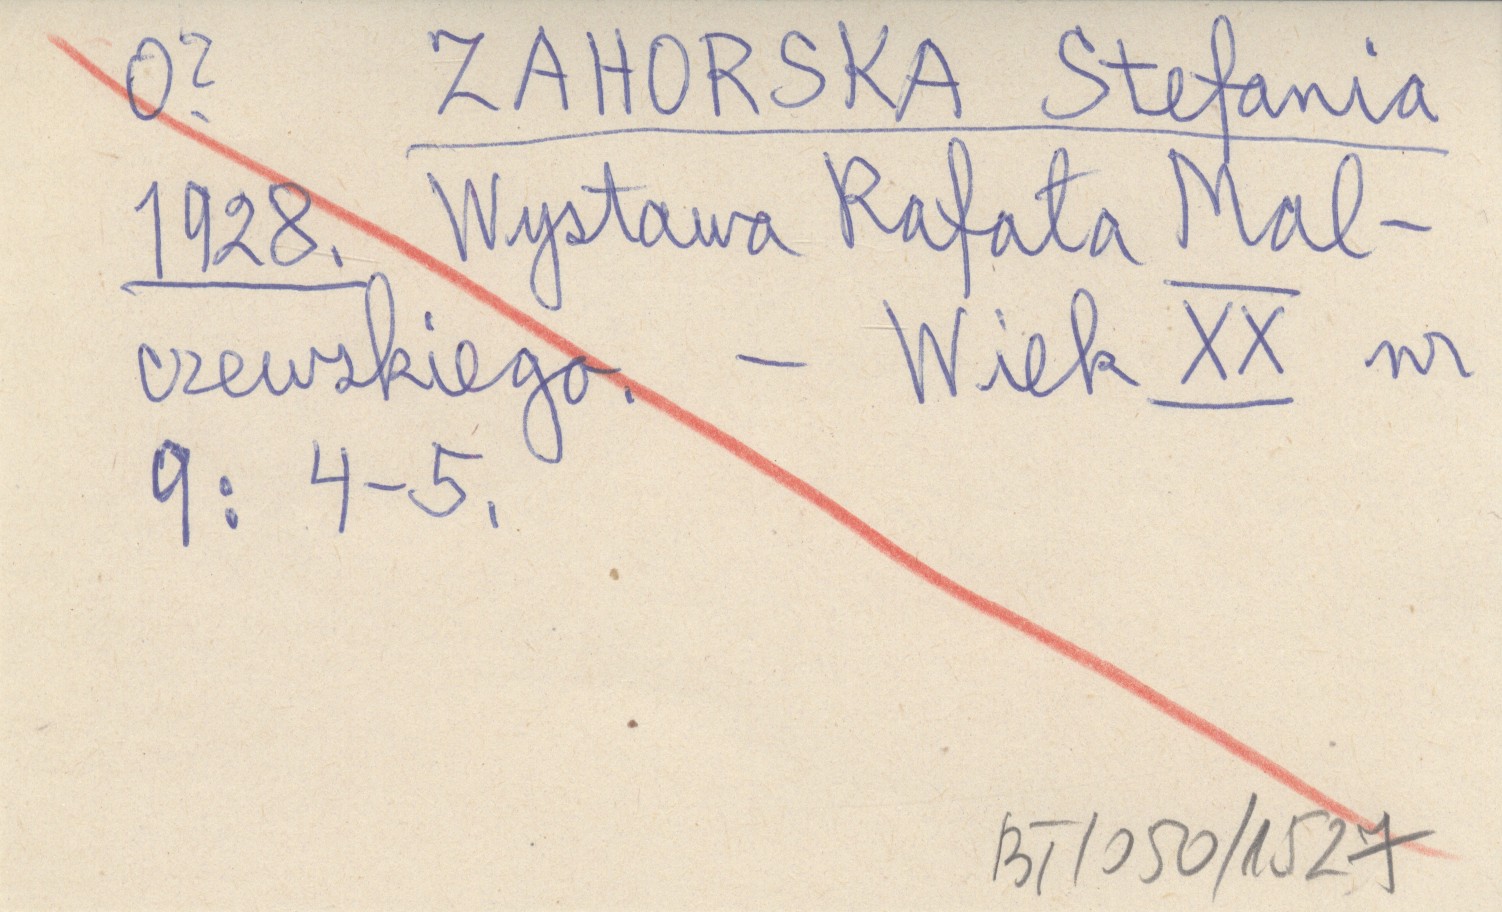 0? ZAHORSKA Stefania
1928. Wystawa Rafała Mal-
czewskiego. - Wiek XX nr
9: 4-5.
BT/050/1527